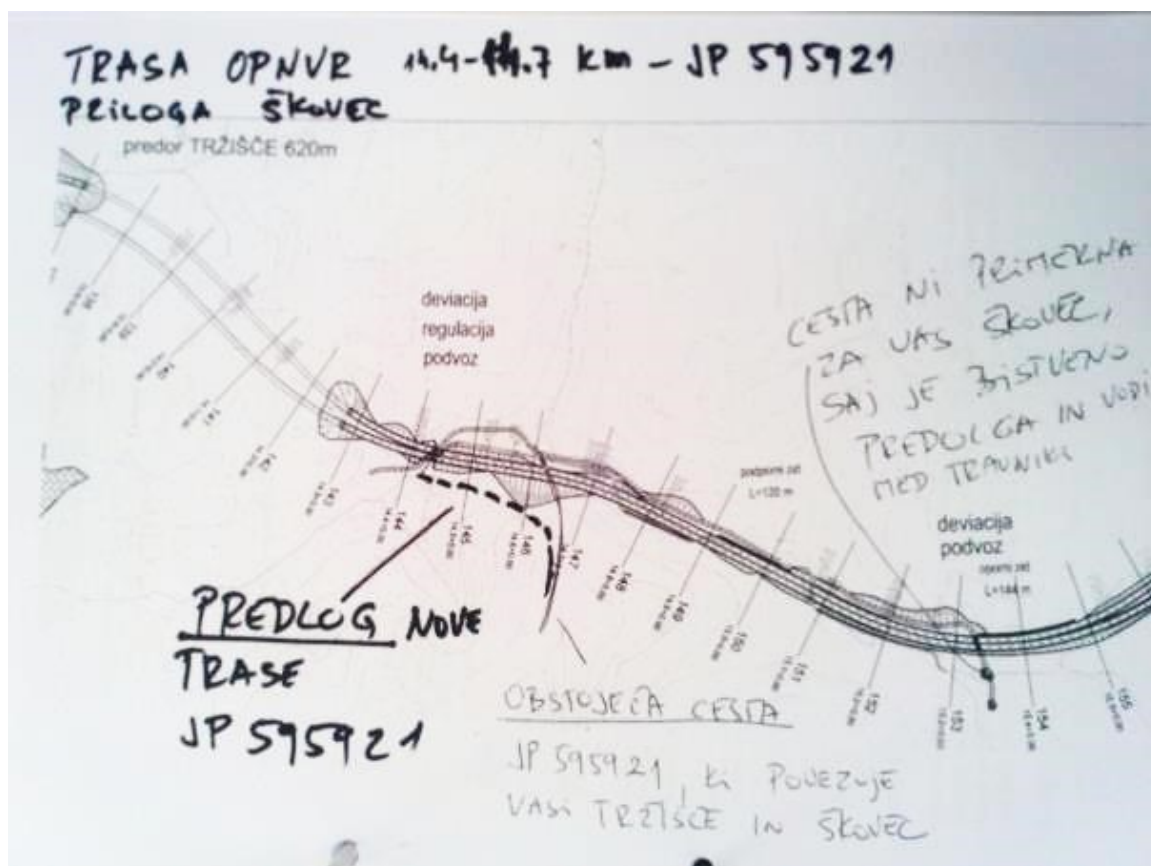 TRASA OPNVR 14.4-14.7 km - JP 595921
PRILOGA ŠKOVEC
predor TRŽIŠČE 620m
deviacija
regulacija
podvoz
CESTA NI PRIMERNA
ZA VAS ŠKOVEC,
SAJ JE BISTVENO
PREDOLGA IN VODI
MED TRAVNIKI
podporni zid
L=120 m
deviacija
podvoz
oporni zid
L=144 m
138
139
140
141
142
143
144
145
146
147
148
149
150
151
152
153
154
155
PREDLOG NOVE
TRASE
JP 595921
OBSTOJEČA CESTA
JP 595921, ki POVEZUJE
VASI TRŽIŠČE IN ŠKOVEC